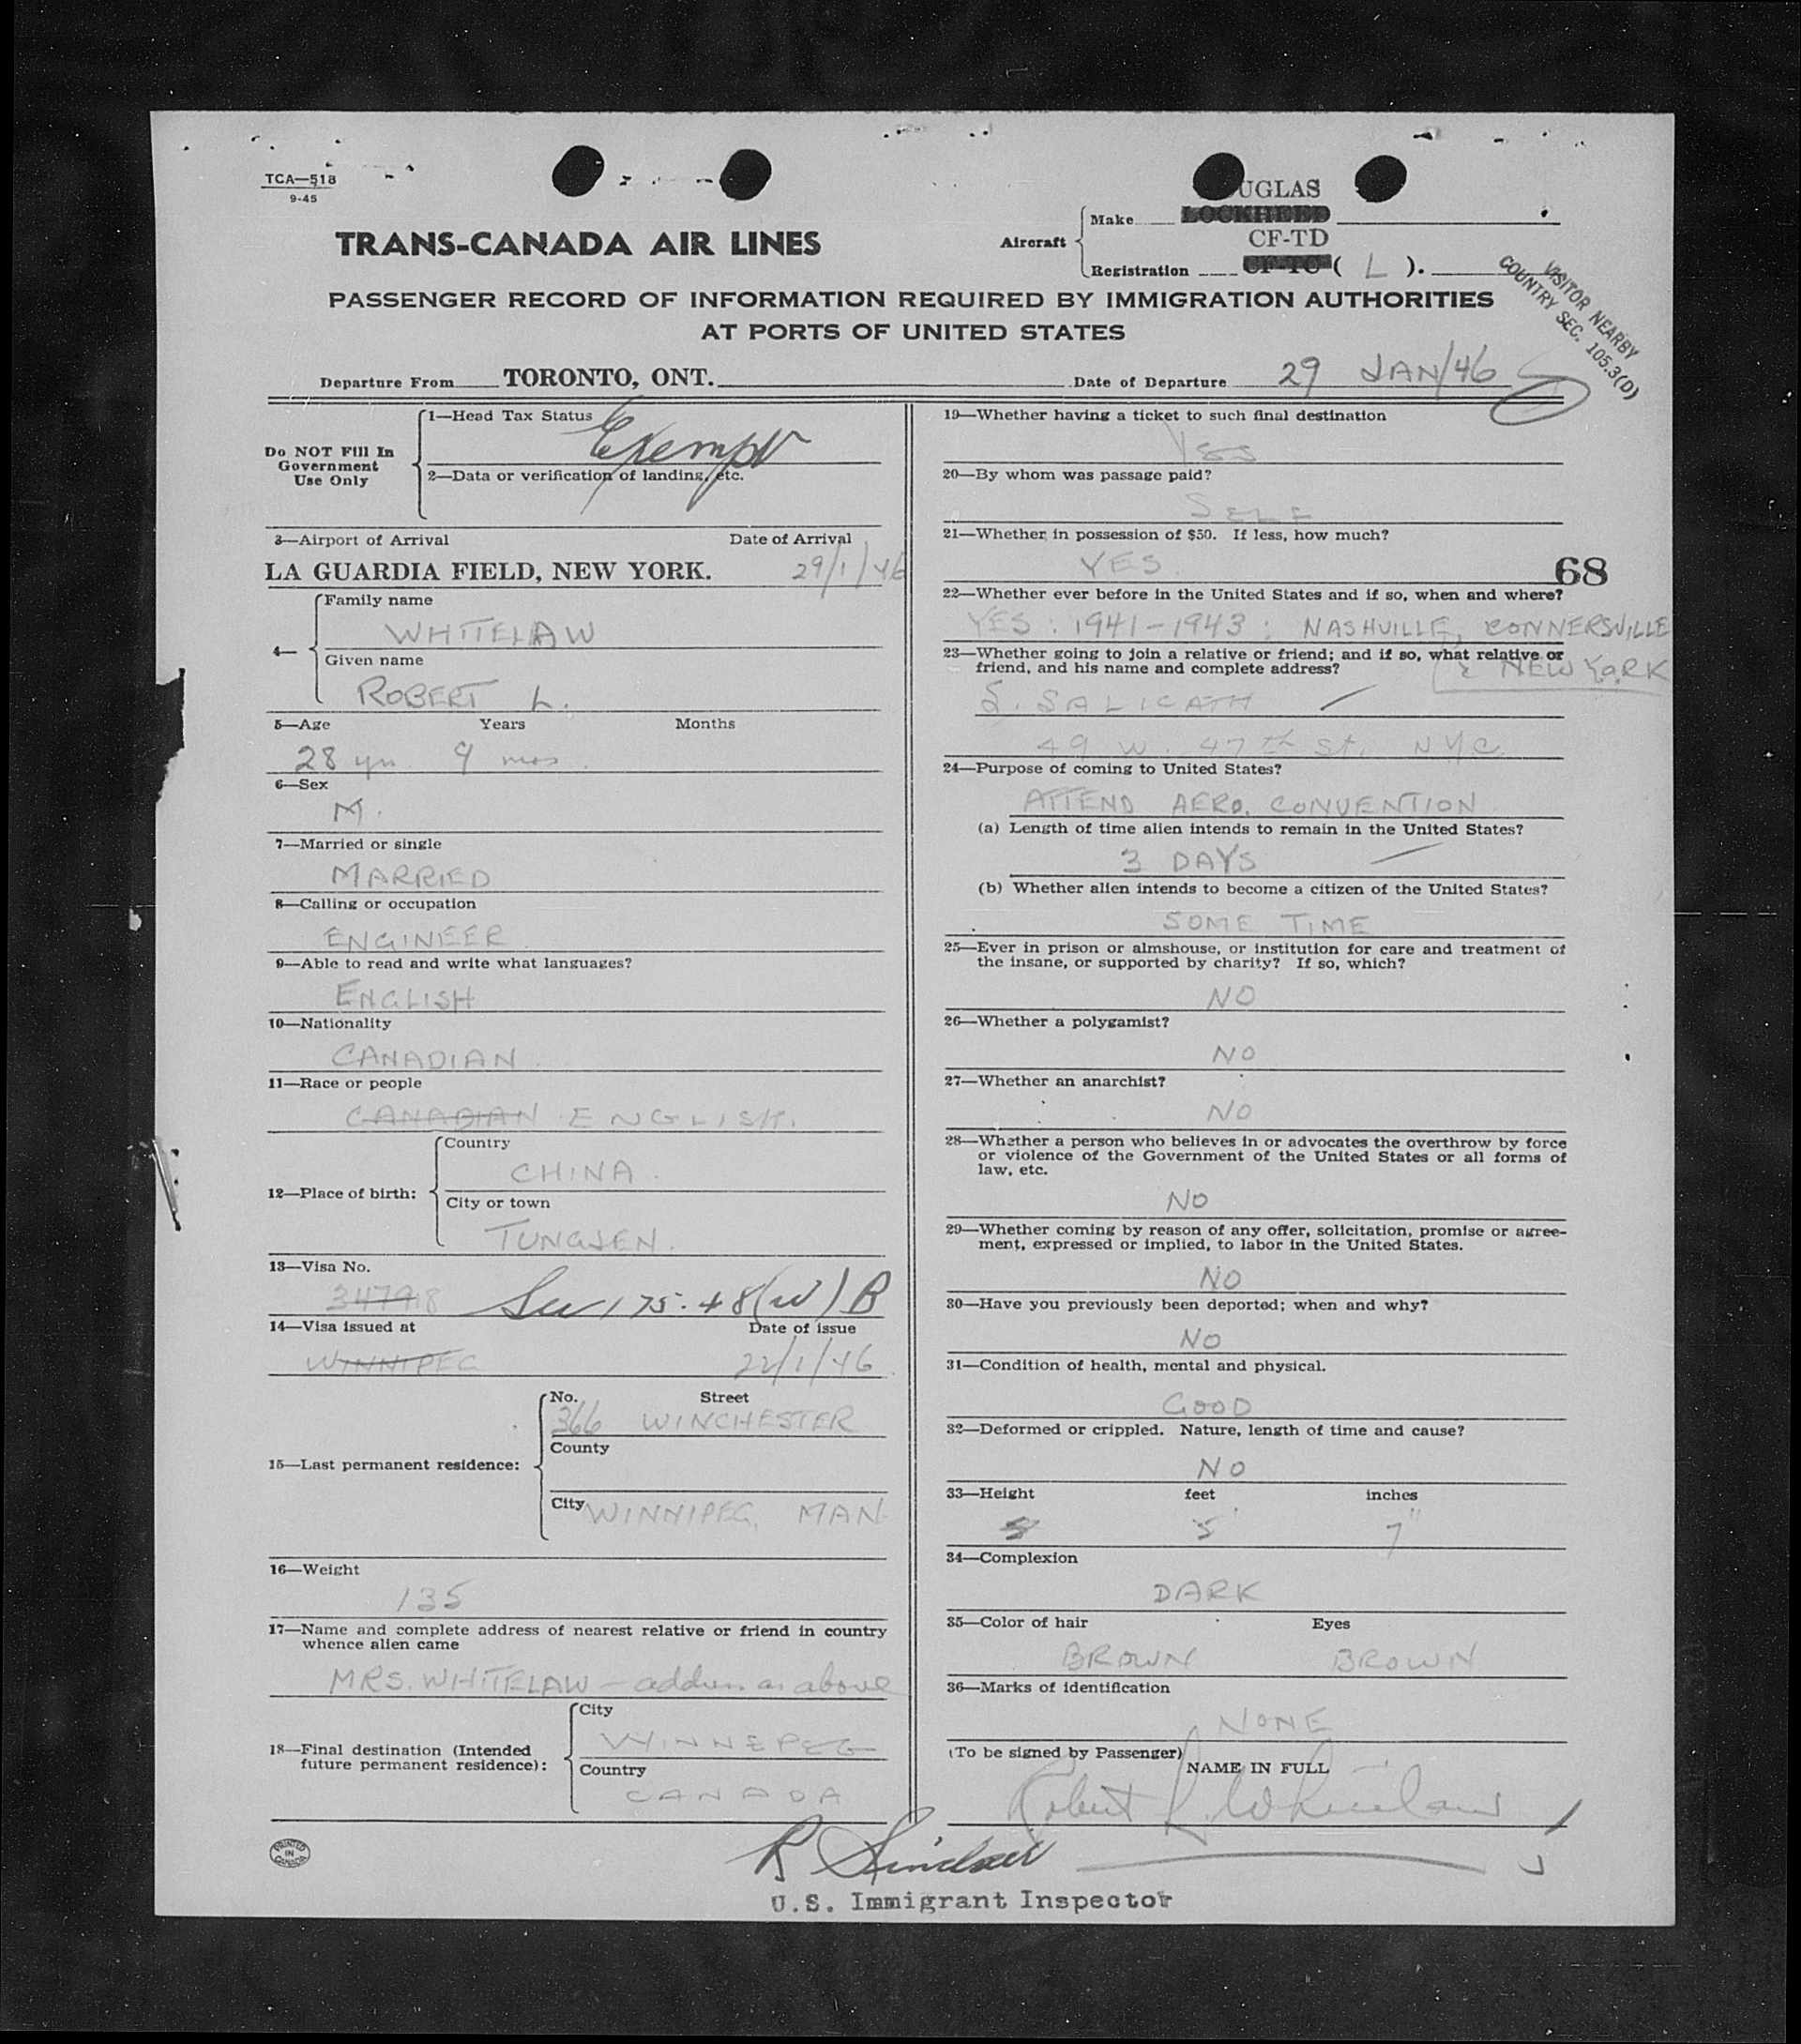 TCA—518
9-45
UGLAS
Make LOCKHEED
TRANS-CANADA AIR LINES
Aircraft
CF-TD
Registration CF-TC ( L ).
VISITOR NEARBY
COUNTRY SEC. 105.3(D)
PASSENGER RECORD OF INFORMATION REQUIRED BY IMMIGRATION AUTHORITIES
AT PORTS OF UNITED STATES
Departure From TORONTO, ONT. Date of Departure 29 JAN/46
Do NOT Fill In
Government
Use Only
1—Head Tax Status
Exempt
2—Data or verification of landing, etc.
3—Airport of Arrival Date of Arrival
LA GUARDIA FIELD, NEW YORK. 29/1/46
4—
Family name
WHITELAW
Given name
ROBERT L.
5—Age Years Months
28 yrs 9 mos.
6—Sex
M.
7—Married or single
MARRIED
8—Calling or occupation
ENGINEER
9—Able to read and write what languages?
ENGLISH
10—Nationality
CANADIAN.
11—Race or people
CANADIAN ENGLISH.
12—Place of birth:
Country
CHINA.
City or town
TUNGJEN.
13—Visa No.
34798 175.48(w) B
14—Visa issued at Date of issue
WINNIPEG 22/1/46
15—Last permanent residence:
No. Street
366 WINCHESTER
County
City WINNIPEG, MAN
16—Weight
135
17—Name and complete address of nearest relative or friend in country
whence alien came
MRS. WHITELAW — address as above
18—Final destination (Intended
future permanent residence):
City
WINNEPEG
Country
CANADA
PRINTED
IN
CANADA
19—Whether having a ticket to such final destination
YES
20—By whom was passage paid?
SELF
21—Whether in possession of $50. If less, how much?
YES.
68
22—Whether ever before in the United States and if so, when and where?
YES: 1941-1943: NASHVILLE, CONNERSVILLE
& NEW YORK
23—Whether going to join a relative or friend; and if so, what relative or
friend, and his name and complete address?
S. SALICATH
49 W. 47th St. N.Y.C.
24—Purpose of coming to United States?
ATTEND AERO. CONVENTION
(a) Length of time alien intends to remain in the United States?
3 DAYS
(b) Whether alien intends to become a citizen of the United States?
SOME TIME
25—Ever in prison or almshouse, or institution for care and treatment of
the insane, or supported by charity? If so, which?
NO
26—Whether a polygamist?
NO
27—Whether an anarchist?
NO
28—Whether a person who believes in or advocates the overthrow by force
or violence of the Government of the United States or all forms of
law, etc.
NO
29—Whether coming by reason of any offer, solicitation, promise or agree-
ment, expressed or implied, to labor in the United States.
NO
30—Have you previously been deported; when and why?
NO
31—Condition of health, mental and physical.
GOOD
32—Deformed or crippled. Nature, length of time and cause?
NO
33—Height feet inches
5' 7"
34—Complexion
DARK
35—Color of hair Eyes
BROWN BROWN
36—Marks of identification
NONE
(To be signed by Passenger)
NAME IN FULL
Robert L. Whitelaw
R Sinclair
U.S. Immigrant Inspector